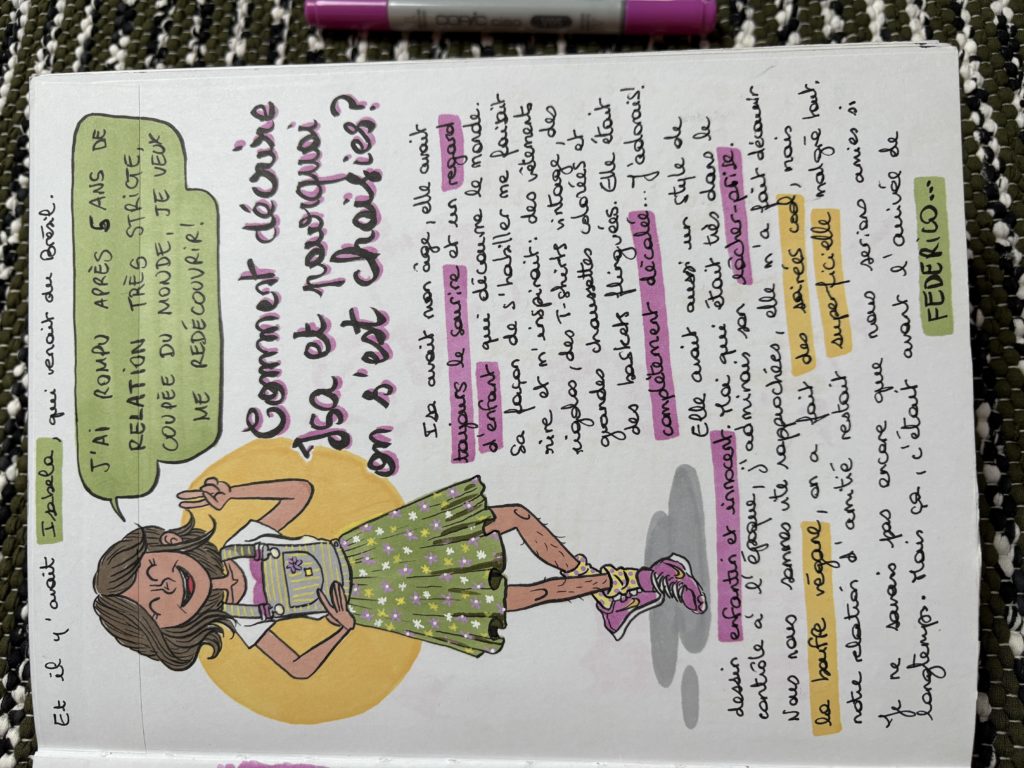 Et il y'avait Isabela, qui venait du Brésil.
J'AI ROMPU APRÈS 5 ANS DE
RELATION TRÈS STRICTE,
COUPÉE DU MONDE, JE VEUX
ME REDÉCOUVRIR!
Comment décrire
Isa et pourquoi
on s'est choisies?
Isa avait mon âge, elle avait
toujours le sourire et un regard
d'enfant qui découvre le monde.
Sa façon de s'habiller me faisait
rire et m'inspirait: des vêtements
rigolos, des T-shirts vintage, des
grandes chaussettes colorées et
des baskets flinguées. Elle était
complètement décalée... j'adorais!
Elle avait aussi un style de
dessin enfantin et innocent. Moi qui était très dans le
contrôle à l'époque, j'admirais son lâcher-prise.
Nous nous sommes vite rapprochées, elle m'a fait découvrir
la bouffe végane, on a fait des soirées cool, mais
notre relation d'amitié restait superficielle malgré tout.
Je ne savais pas encore que nous serions amies si
longtemps. Mais ça, c'était avant l'arrivée de
FEDERICO...
copic ciao